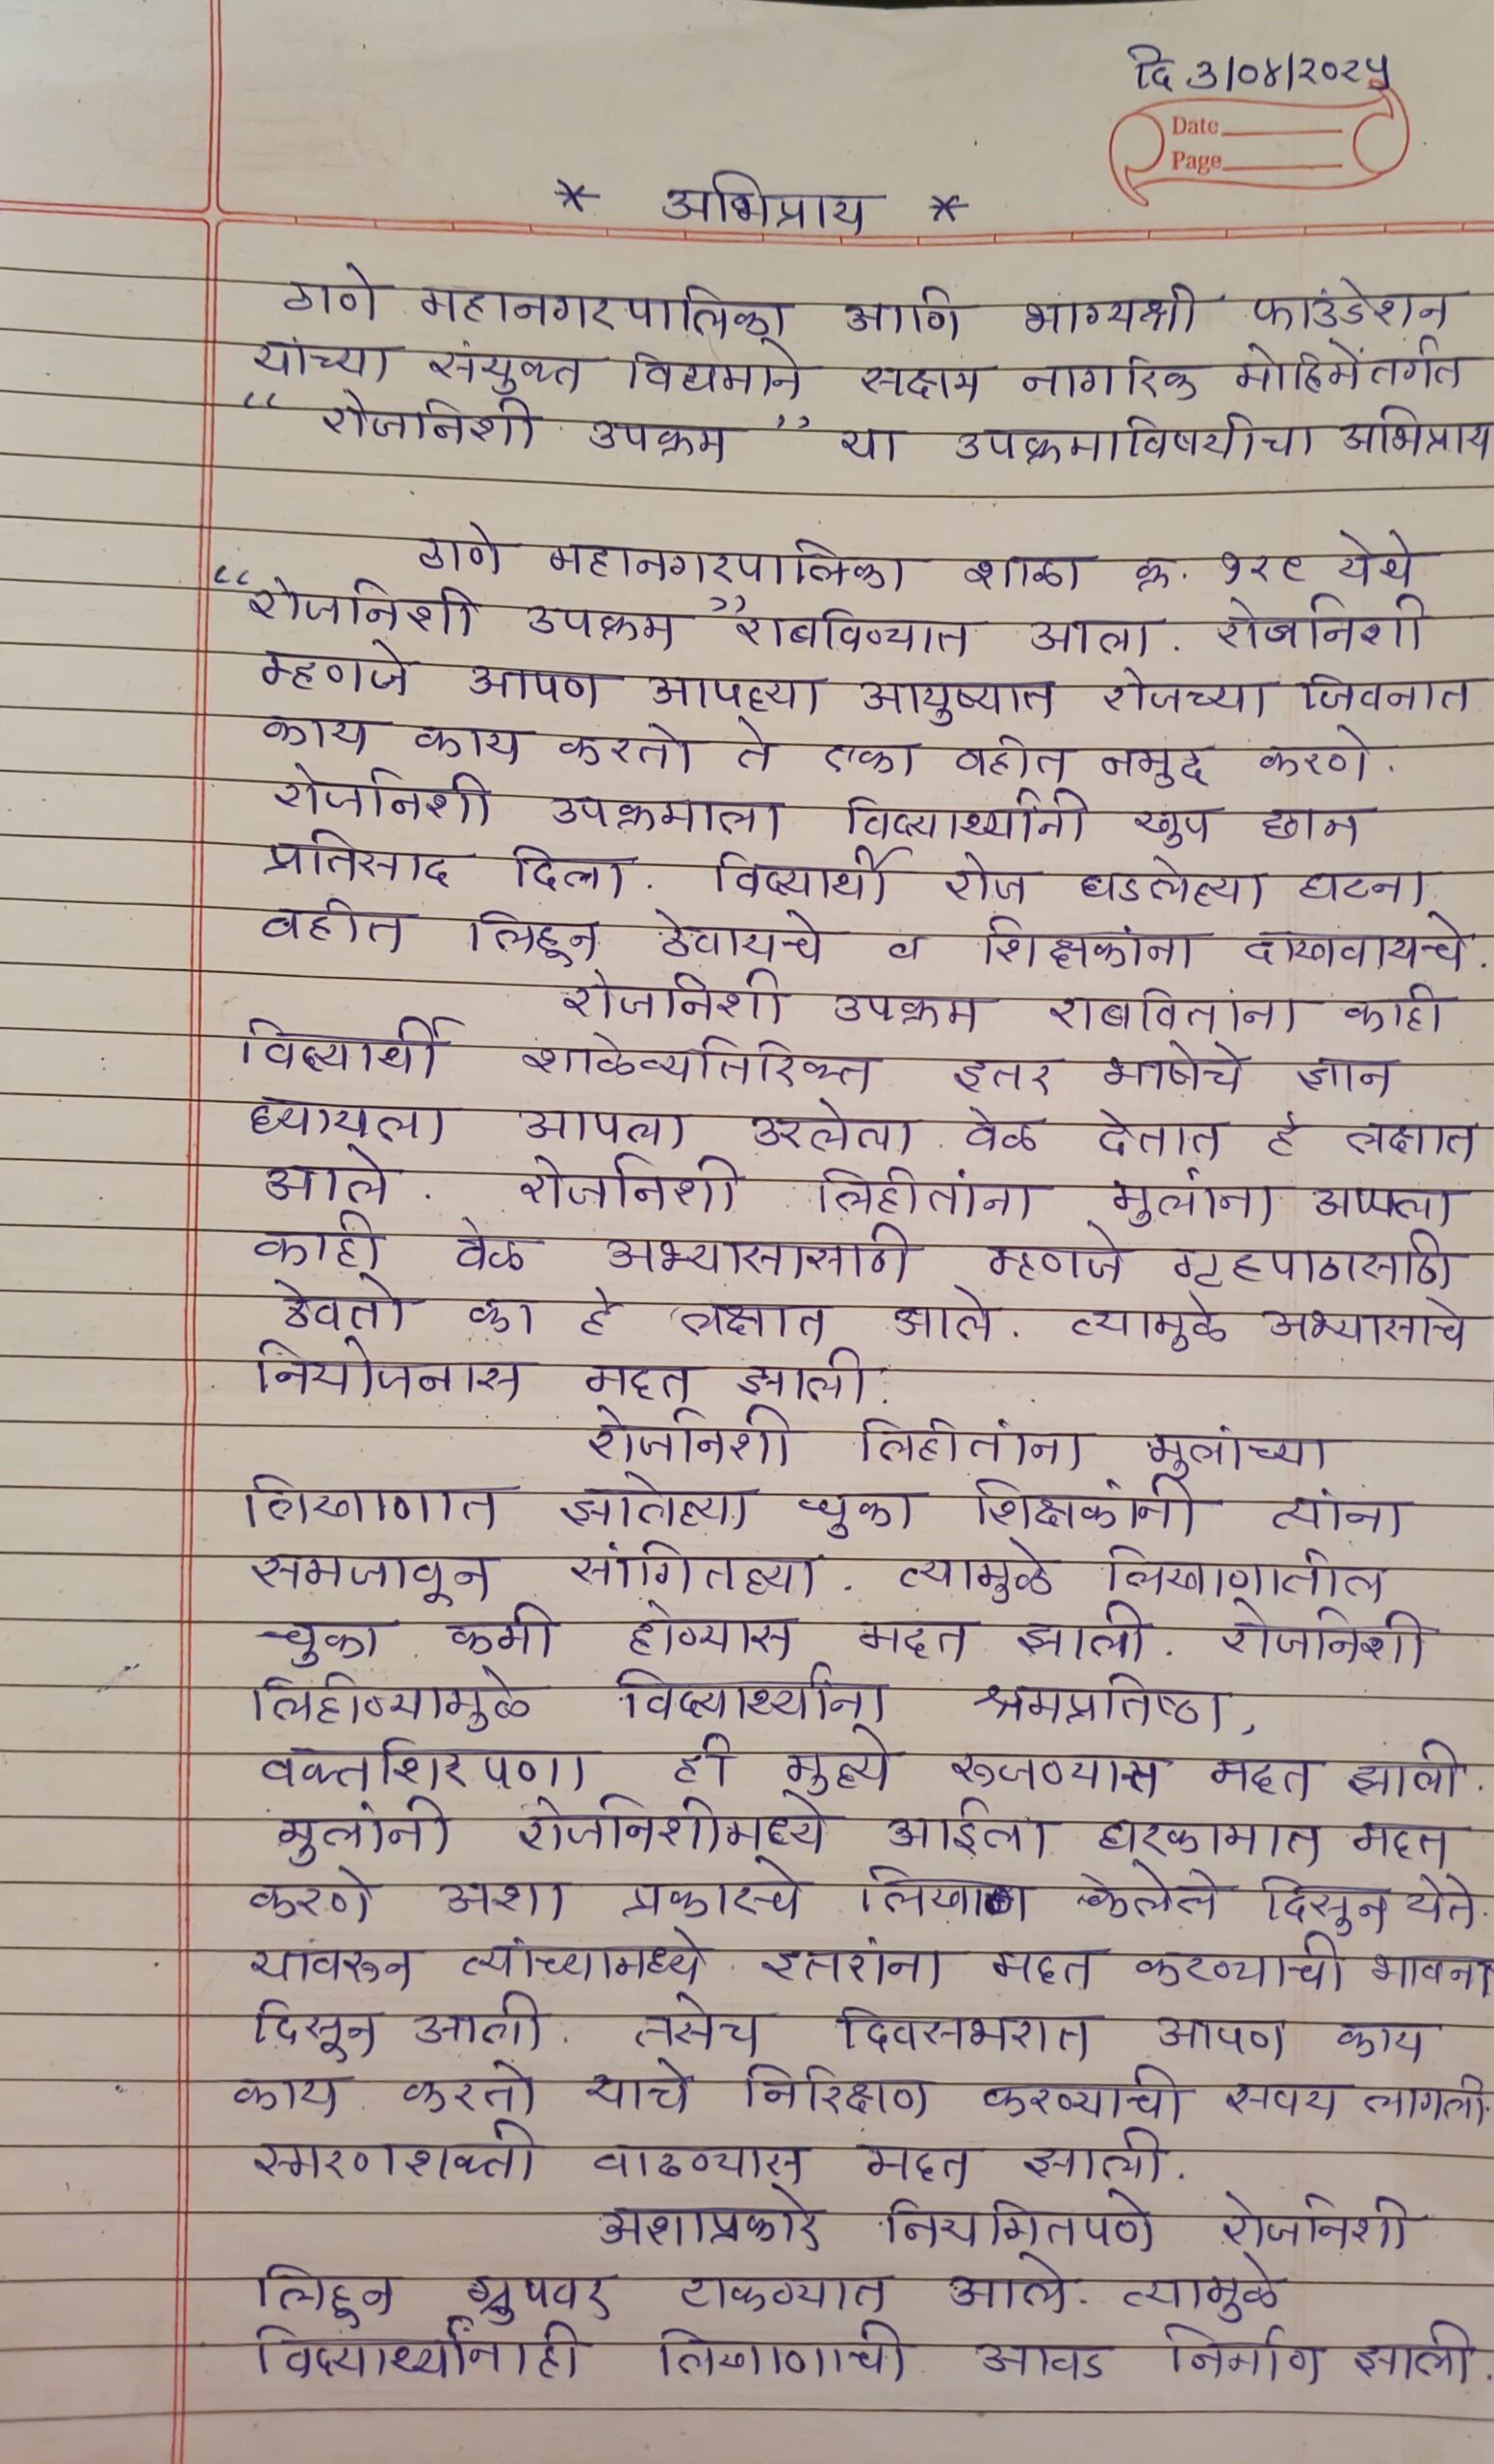 दि ३/०४/२०२५
Date
Page
* अभिप्राय *
ठाणे महानगरपालिका आणि भाग्यश्री फाउंडेशन
यांच्या संयुक्त विद्यमाने सक्षम नागरिक मोहिमेंतर्गत
“ रोजनिशी उपक्रम ” या उपक्रमाविषयीचा अभिप्राय
ठाणे महानगरपालिका शाळा क्र. १२९ येथे
“रोजनिशी उपक्रम” राबविण्यात आला. रोजनिशी
म्हणजे आपण आपल्या आयुष्यात रोजच्या जिवनात
काय काय करतो ते एका वहीत नमुद करणे.
रोजनिशी उपक्रमाला विद्यार्थ्यांनी खुप छान
प्रतिसाद दिला. विद्यार्थी रोज घडलेल्या घटना
वहीत लिहून ठेवायचे व शिक्षकांना दाखवायचे.
रोजनिशी उपक्रम राबवितांना काही
विद्यार्थी शाळेव्यतिरिक्त इतर भाषेचे ज्ञान
घ्यायला आपला उरलेला वेळ देतात हे लक्षात
आले. रोजनिशी लिहीतांना मुलांना आपला
काही वेळ अभ्यासासाठी म्हणजे गृहपाठासाठी
ठेवतो का हे लक्षात आले. त्यामुळे अभ्यासाचे
नियोजनास मदत झाली.
रोजनिशी लिहीतांना मुलांच्या
लिखाणात झालेल्या चुका शिक्षकांनी त्यांना
समजावून सांगितल्या. त्यामुळे लिखाणातील
चुका कमी होण्यास मदत झाली. रोजनिशी
लिहीण्यामुळे विद्यार्थ्यांना श्रमप्रतिष्ठा,
वक्तशिरपणा ही मुल्ये रूजण्यास मदत झाली.
मुलांनी रोजनिशीमध्ये आईला घरकामात मदत
करणे अशा प्रकारचे लिखाण केलेले दिसुन येते.
यावरून त्यांच्यामध्ये इतरांना मदत करण्याची भावना
दिसून आली. तसेच दिवसभरात आपण काय
काय करतो याचे निरिक्षण करण्याची सवय लागली.
स्मरणशक्ती वाढण्यास मदत झाली.
अशाप्रकारे नियमितपणे रोजनिशी
लिहून ग्रुपवर टाकण्यात आले. त्यामुळे
विद्यार्थ्यांनाही लिखाणाची आवड निर्माण झाली.